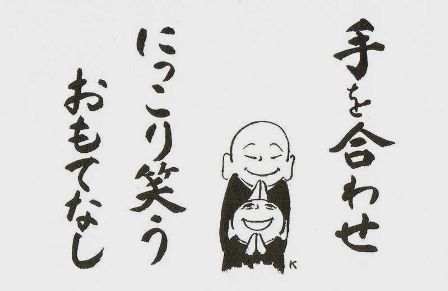 手を合わせ
にっこり笑う
おもてなし
K